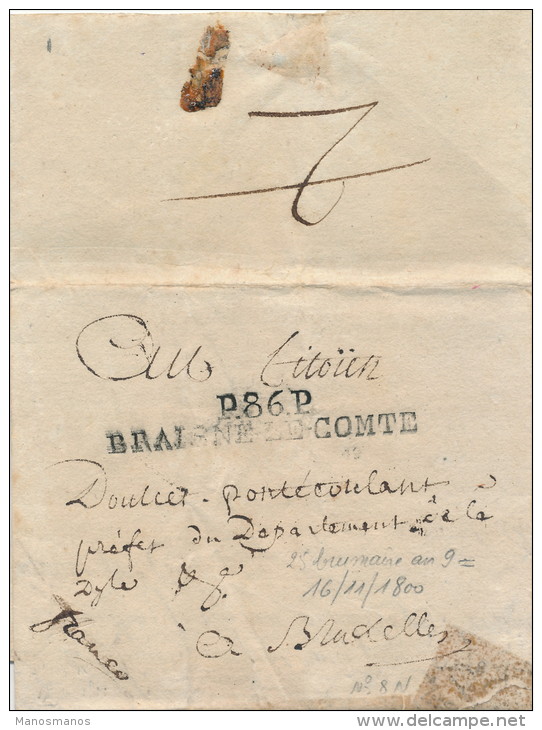 Au Citoïen
P.86.P.
BRAISNE-LE-COMTE
Doulcet-pontécoulant
préfet du Département de la
Dyle
25 brumaire an 9 =
16/11/1800
à Bruxelles
franco
N° 8 N
Manosmanos
www.delcampe.net